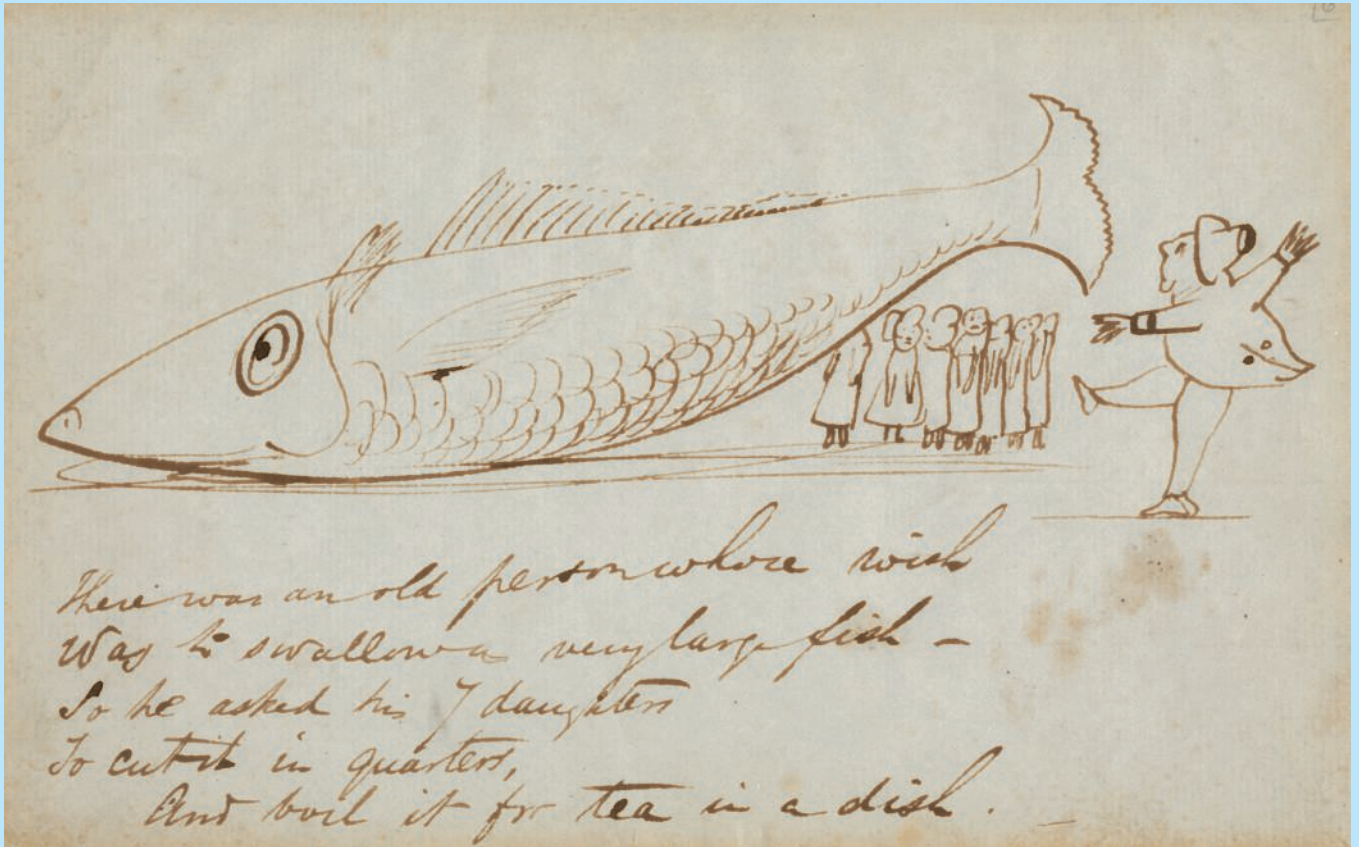 There was an old person whose wish
Was to swallow a very large fish –
So he asked his 7 daughters
To cut it in quarters,
And boil it for tea in a dish.